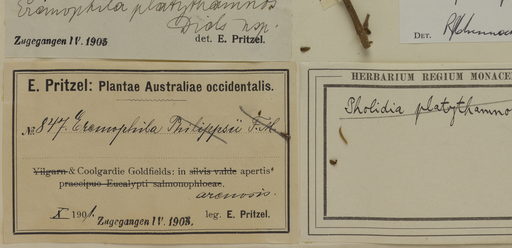 Eremophila platythamnos
Diels n sp.
Zugegangen IV. 1905 det. E. Pritzel.
DET.
E. Pritzel: Plantae Australiae occidentalis.
№ 847. Eremophila Philippsii F. M.
Yilgarn & Coolgardie Goldfields: in silvis valde apertis
praecipue Eucalypti salmonophloae.
arenosis.
X 1901. leg. E. Pritzel.
Zugegangen IV. 1905.
HERBARIUM REGIUM MONACE
Pholidia platythamno